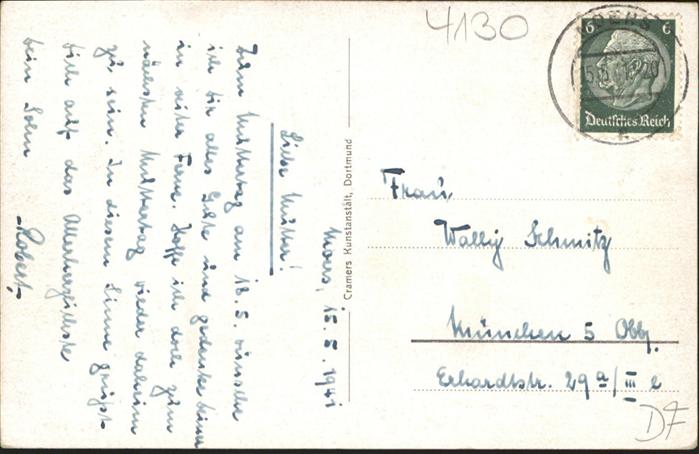 4130
MOERS
6 6
Deutsches Reich
Moers, 15.5.1941
Liebe Mutter!
Zum Muttertag am 18.5. wünsche
ich dir alles Gute und gedenke deiner
in weiter Ferne. Hoffe ich doch zum
nächsten Muttertag wieder daheim
zu sein. In diesem Sinne grüßt
dich auf das Allerherzlichste
dein Sohn
Robert.
Cramers Kunstanstalt, Dortmund
Frau
Wally Schmitz
München 5 Obb.
Erhardtstr. 29a/III l
DF